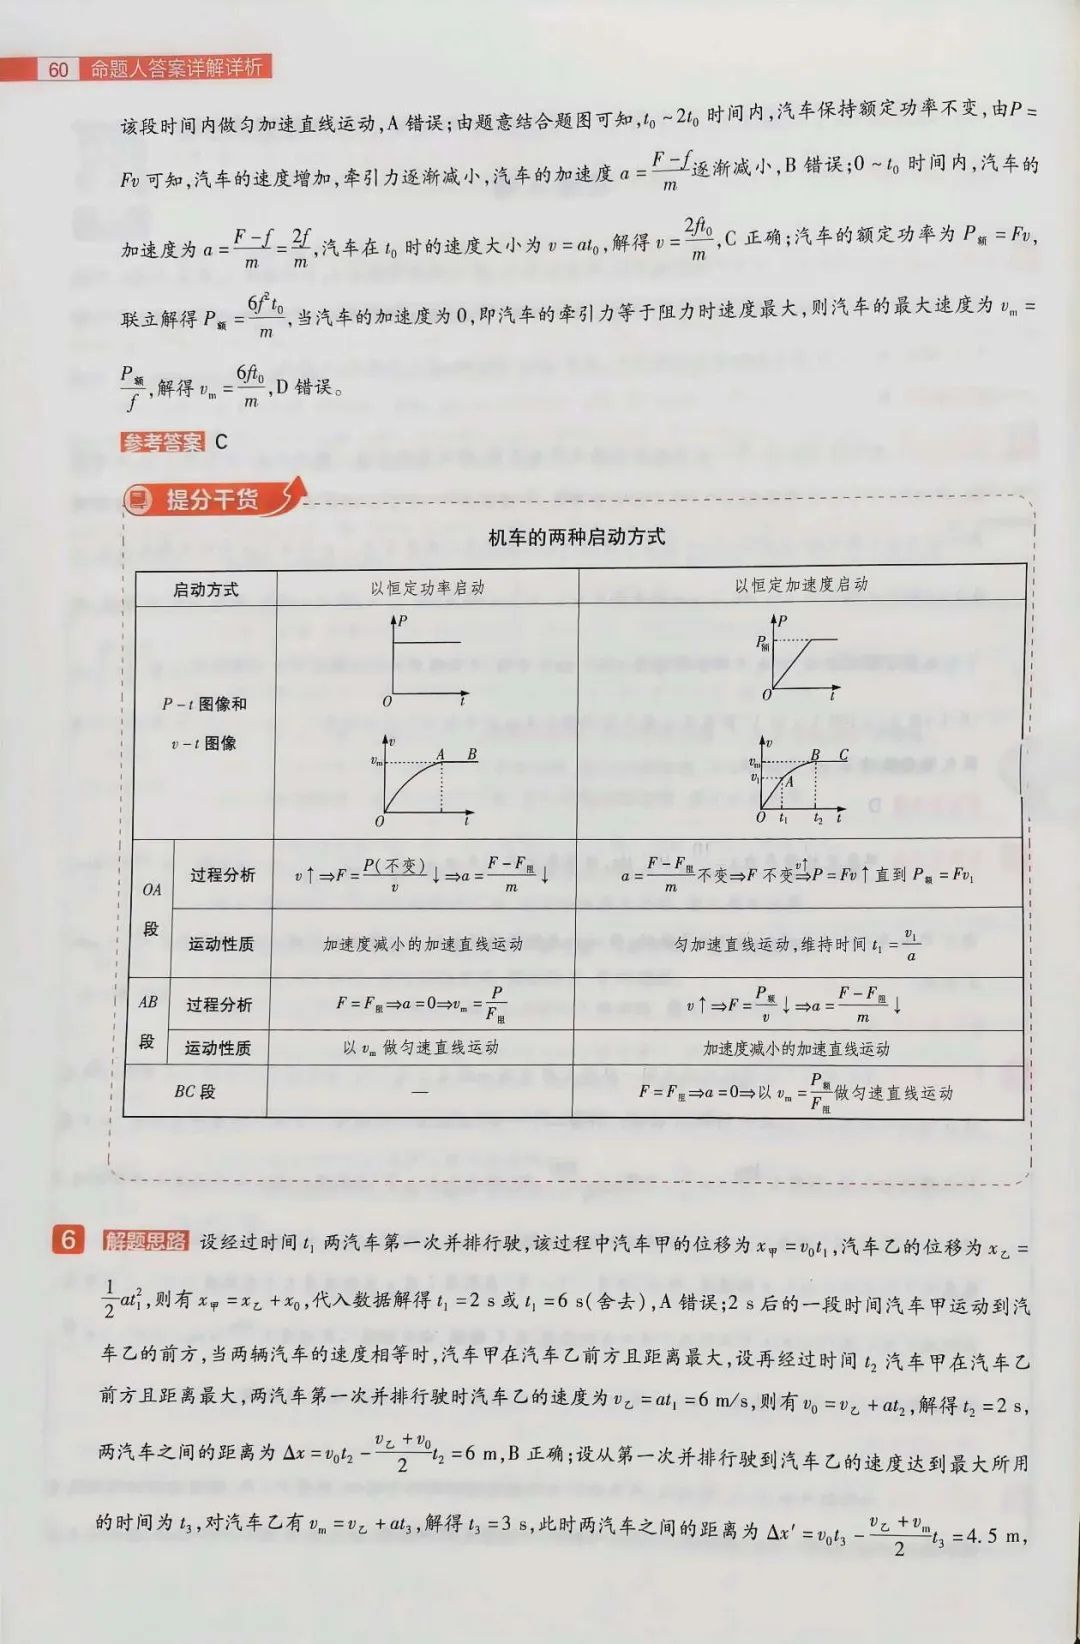 60 命题人答案详解详析
该段时间内做匀加速直线运动,A 错误;由题意结合题图可知,t₀ ~ 2t₀ 时间内,汽车保持额定功率不变,由P =
Fv 可知,汽车的速度增加,牵引力逐渐减小,汽车的加速度 a = (F - f)/m 逐渐减小,B 错误;0 ~ t₀ 时间内,汽车的
加速度为 a = (F - f)/m = 2f/m,汽车在 t₀ 时的速度大小为 v = at₀,解得 v = 2ft₀/m,C 正确;汽车的额定功率为 P额 = Fv,
联立解得 P额 = 6f²t₀/m,当汽车的加速度为0,即汽车的牵引力等于阻力时速度最大,则汽车的最大速度为 vₘ =
P额/f,解得 vₘ = 6ft₀/m,D 错误。
参考答案 C
提分干货
机车的两种启动方式
启动方式 以恒定功率启动 以恒定加速度启动
P - t 图像和
v - t 图像
P
O t
v
vₘ A B
O t
P
P额
O t
v
vₘ B C
v₁ A
O t₁ t₂ t
OA
段
过程分析 v↑⇒F = P(不变)/v ↓⇒a = (F - F阻)/m ↓ a = (F - F阻)/m 不变⇒F 不变 v↑⇒ P = Fv↑直到 P额 = Fv₁
运动性质 加速度减小的加速直线运动 匀加速直线运动,维持时间 t₁ = v₁/a
AB
段
过程分析 F = F阻⇒a = 0⇒vₘ = P/F阻 v↑⇒F = P额/v ↓⇒a = (F - F阻)/m ↓
运动性质 以 vₘ 做匀速直线运动 加速度减小的加速直线运动
BC 段 — F = F阻⇒a = 0⇒以 vₘ = P额/F阻 做匀速直线运动
6 解题思路 设经过时间 t₁ 两汽车第一次并排行驶,该过程中汽车甲的位移为 x甲 = v₀t₁,汽车乙的位移为 x乙 =
1/2 at₁²,则有 x甲 = x乙 + x₀,代入数据解得 t₁ = 2 s 或 t₁ = 6 s(舍去),A 错误;2 s 后的一段时间汽车甲运动到汽
车乙的前方,当两辆汽车的速度相等时,汽车甲在汽车乙前方且距离最大,设再经过时间 t₂ 汽车甲在汽车乙
前方且距离最大,两汽车第一次并排行驶时汽车乙的速度为 v乙 = at₁ = 6 m/s,则有 v₀ = v乙 + at₂,解得 t₂ = 2 s,
两汽车之间的距离为 Δx = v₀t₂ - (v乙 + v₀)/2 t₂ = 6 m,B 正确;设从第一次并排行驶到汽车乙的速度达到最大所用
的时间为 t₃,对汽车乙有 vₘ = v乙 + at₃,解得 t₃ = 3 s,此时两汽车之间的距离为 Δx′ = v₀t₃ - (v乙 + vₘ)/2 t₃ = 4.5 m,